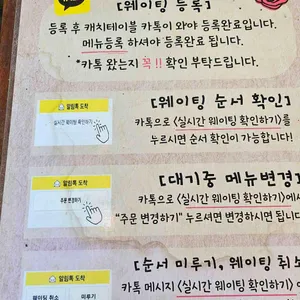 [웨이팅 등록]
등록 후 캐치테이블 카톡이 와야 등록완료입니다.
메뉴등록 하셔야 등록완료 됩니다.
*카톡 왔는지 꼭!! 확인 부탁드립니다.
알림톡 도착
실시간 웨이팅 확인하기
[웨이팅 순서 확인]
카톡으로 <실시간 웨이팅 확인하기>를
누르시면 순서 확인이 가능합니다!
알림톡 도착
주문 변경하기
[대기중 메뉴변경]
카톡으로 <실시간 웨이팅 확인하기>에서
"주문 변경하기" 누르셔면 변경하시면 됩니다
알림톡 도착
웨이팅 취소 미루기
[순서 미루기, 웨이팅 취소
카톡 메시지 <실시간 웨이팅 확인하기>